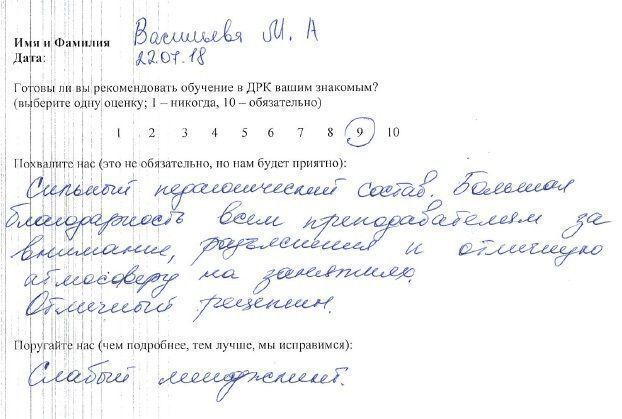 Имя и Фамилия Васильева М. А
Дата: 22.07.18
Готовы ли вы рекомендовать обучение в ДРК вашим знакомым?
(выберите одну оценку; 1 – никогда, 10 – обязательно)
1 2 3 4 5 6 7 8 9 10
Похвалите нас (это не обязательно, но нам будет приятно):
Сильный педагогический состав. Большая
благодарность всем преподавателям за
внимание, разъяснения и отличную
атмосферу на занятиях.
Отличный рецепшн.
Поругайте нас (чем подробнее, тем лучше, мы исправимся):
Слабый менеджмент.